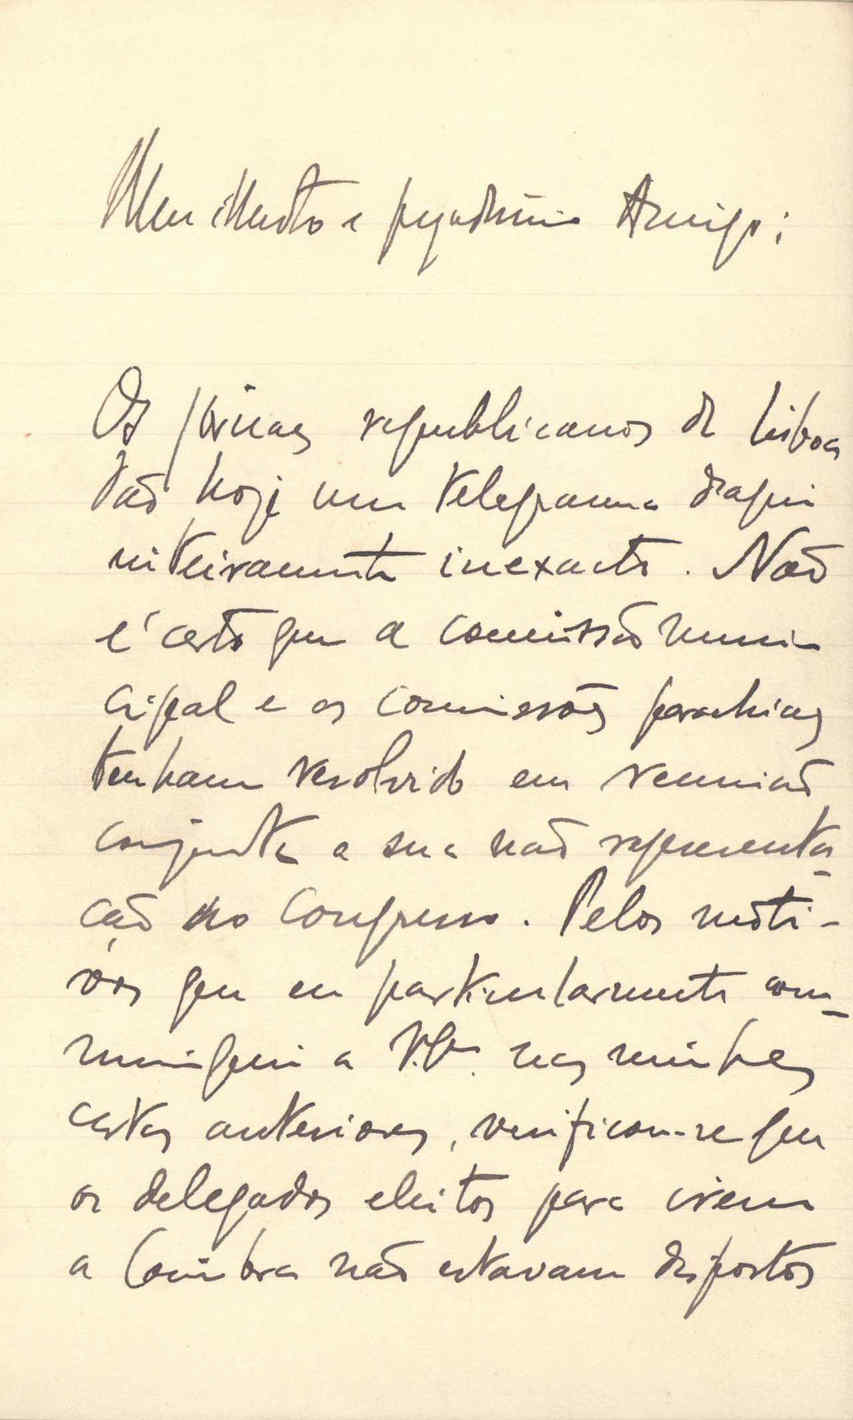 Meu illustre e presadissimo Amigo:
Os jornaes republicanos de Lisboa
dão hoje um telegramma d'aqui
inteiramente inexacto. Não
é certo que a comissão muni-
cipal e as comissões parochiaes
tenham resolvido em reunião
conjunta a sua não representa-
ção no Congresso. Pelos moti-
vos que eu particularmente com-
muniquei a V. Ex.ª nas minhas
cartas anteriores, verificou-se que
os delegados eleitos para irem
a Coimbra não estavam dispostos